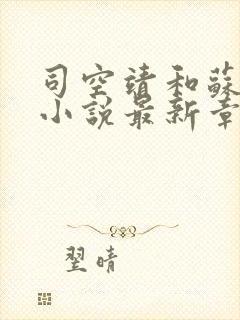 司空靖和蘇
小說最新章
翌晴